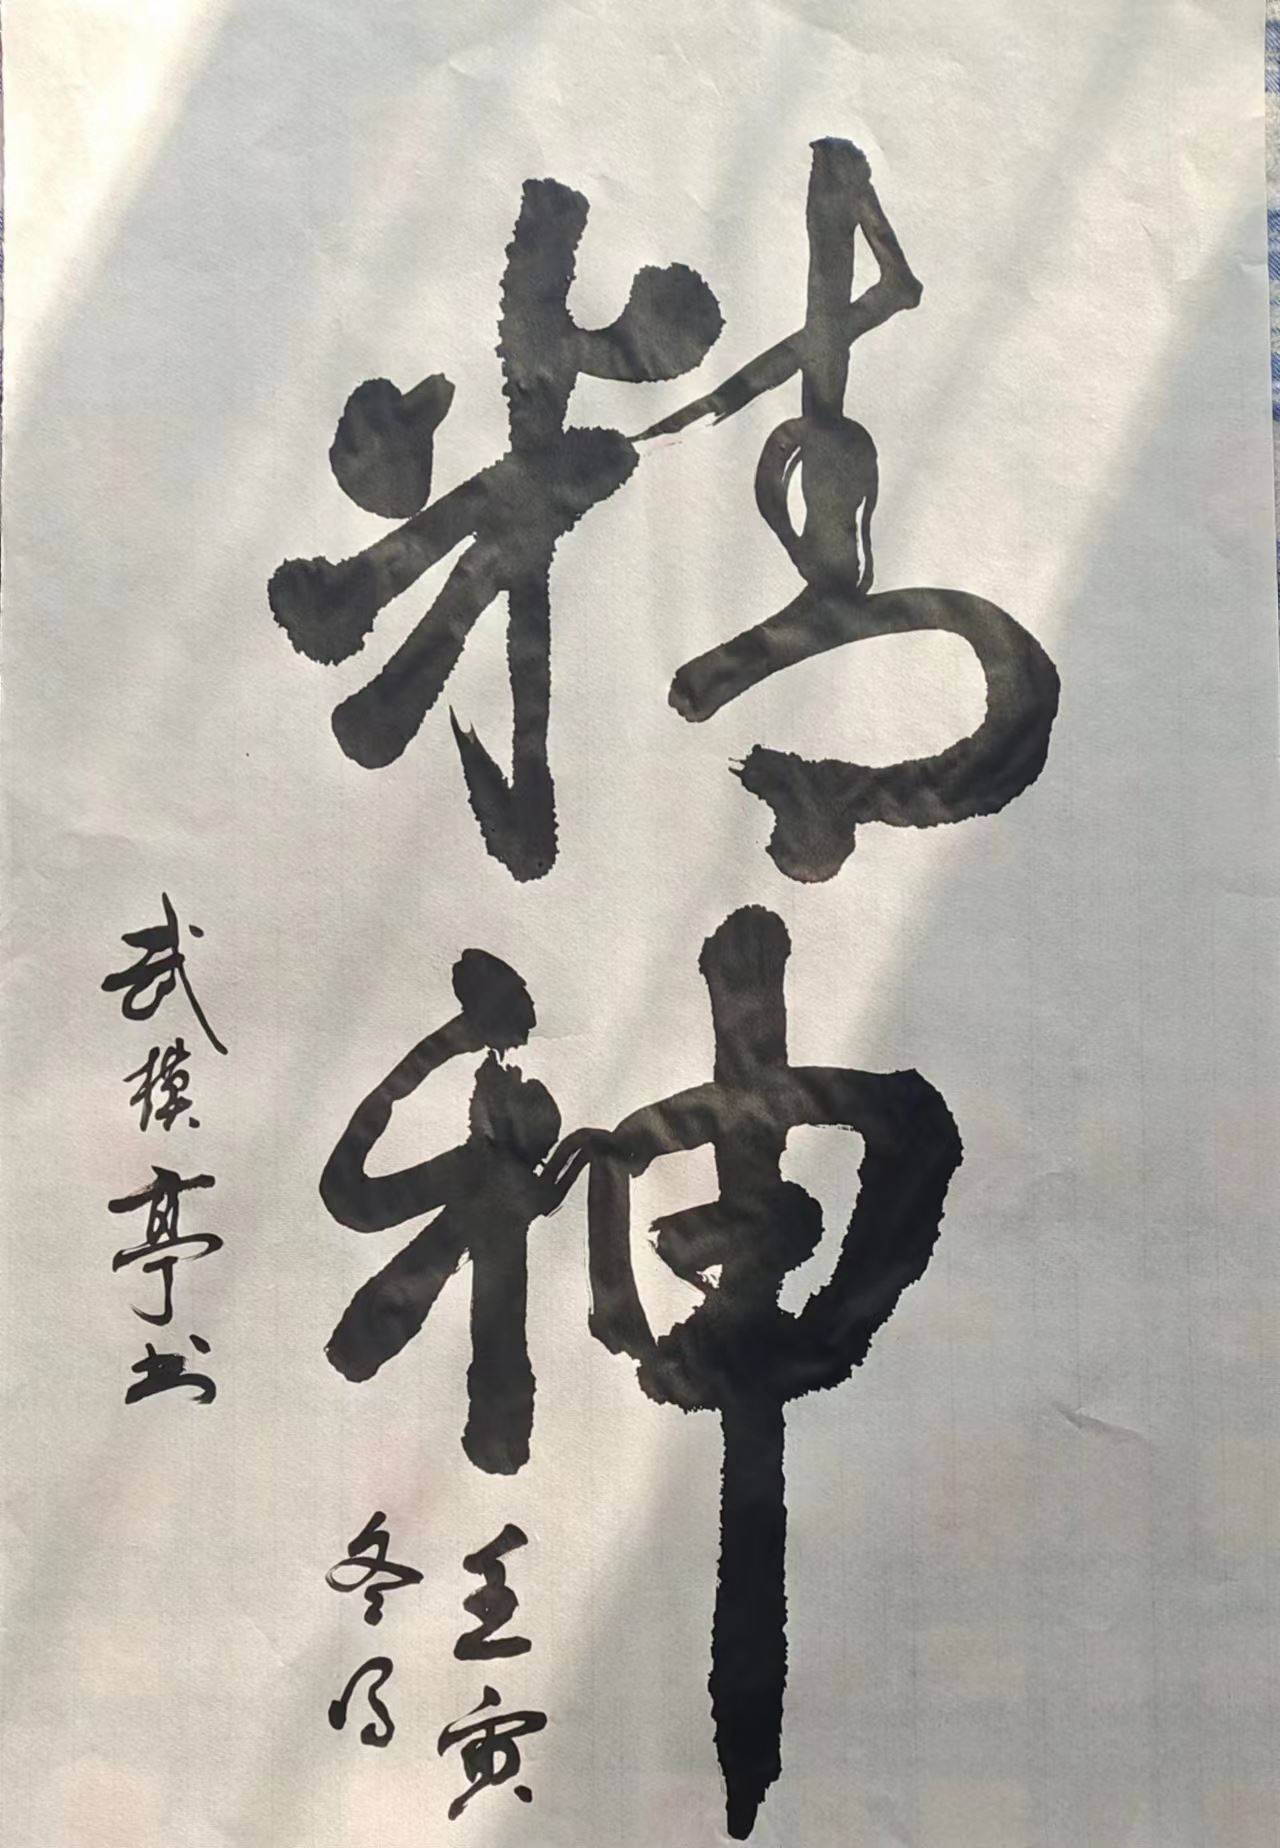 精神
壬寅
冬月
武模亭书